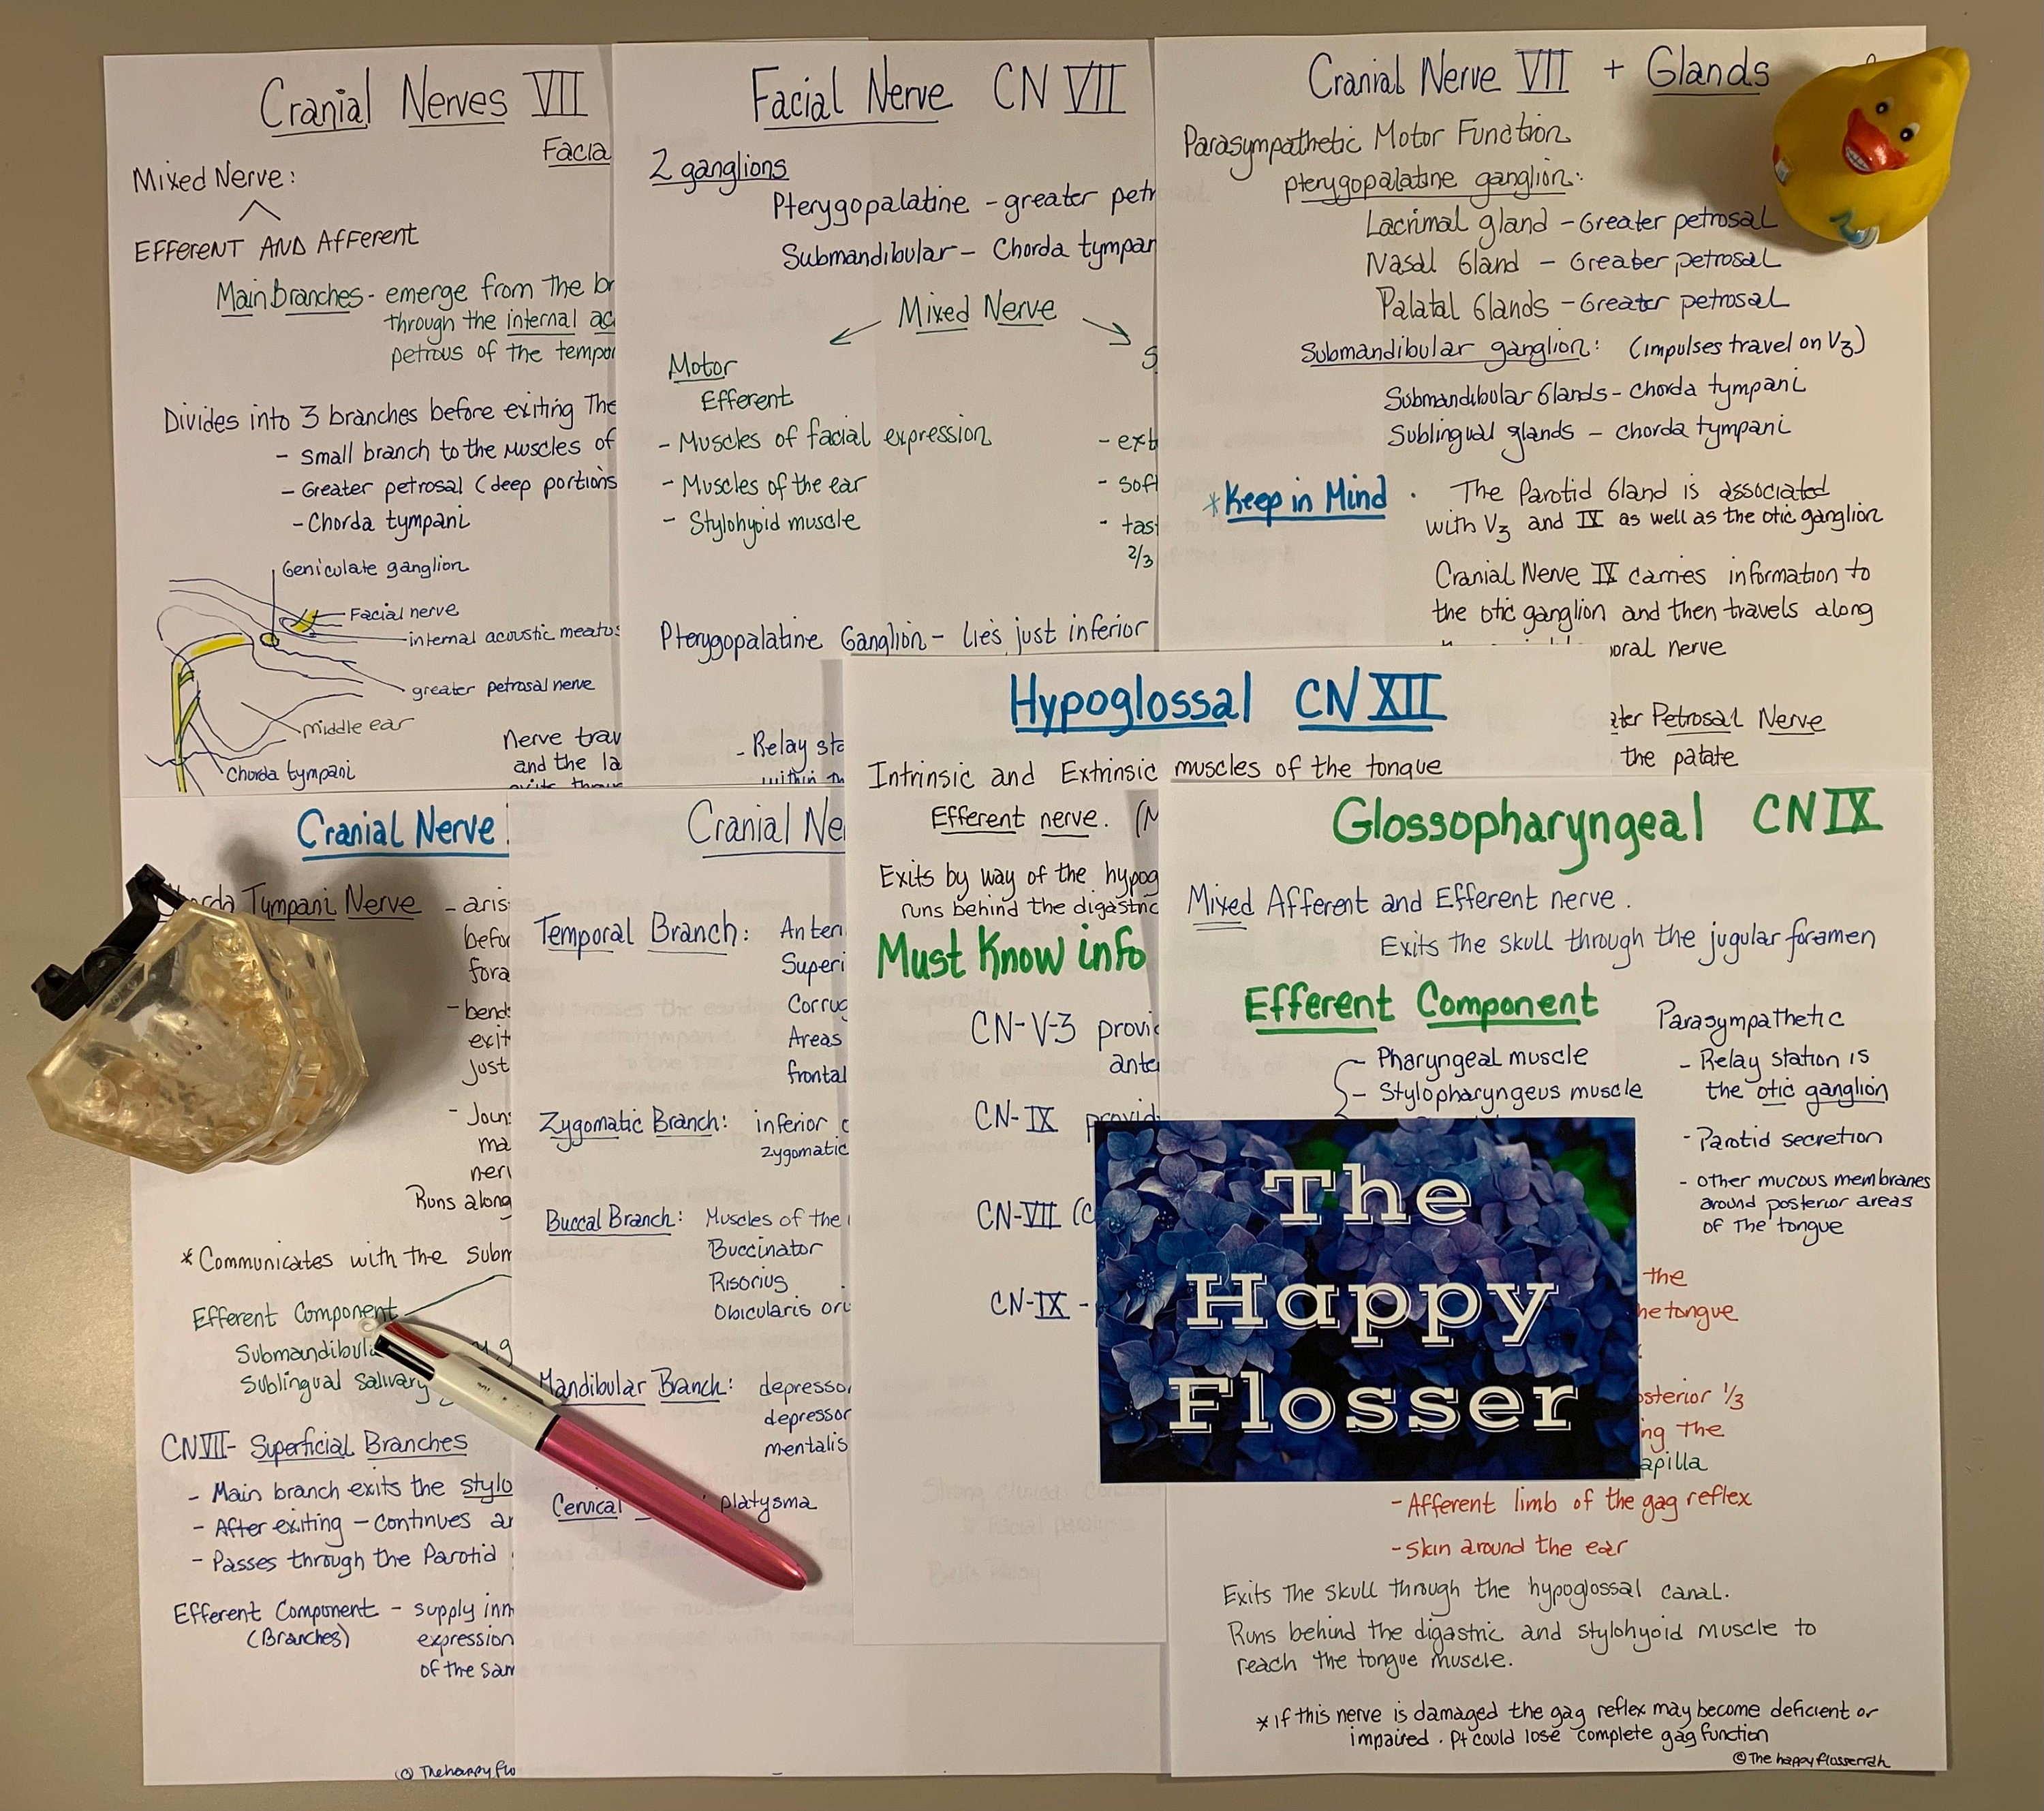 Cranial Nerves VII
Facia
Mixed Nerve:
EFFERENT AND AFFERENT
Main Branches - emerge from the br
through the internal ac
petrous of the tempor
Divides into 3 branches before exiting The
- Small branch to the Muscles of
- Greater petrosal (deep portions
- Chorda tympani
Geniculate ganglion
Facial nerve
internal acoustic meatus
greater petrosal nerve
middle ear
Chorda tympani
Nerve trav
and the la
Facial Nerve CN VII
2 ganglions
Pterygopalatine - greater petr
Submandibular - Chorda tympan
Mixed Nerve
Motor
Efferent
- Muscles of facial expression
- Muscles of the ear
- Stylohyoid muscle
S
- ext
- soft
- tast
2/3
Pterygopalatine Ganglion - Lies just inferior
- Relay sta
within th
Cranial Nerve VII + Glands
Parasympathetic Motor Function
Pterygopalatine ganglion:
Lacrimal gland - Greater petrosal
Nasal Gland - Greater petrosal
Palatal Glands - Greater petrosal
Submandibular ganglion: (impulses travel on V3)
Submandibular Glands - Chorda tympani
Sublingual glands - Chorda tympani
*Keep in Mind · The Parotid Gland is associated
with V3 and IX as well as the otic ganglion
Cranial Nerve IX carries information to
the otic ganglion and then travels along
oral nerve
ater Petrosal Nerve
the patate
Cranial Nerve
Tympani Nerve - aris
befor
fora
- bends
exit
Just
- Joins
ma
nerv
Runs along
* Communicates with the Subm
Efferent Component
Submandibula
Sublingual Salivary
CN VII - Superficial Branches
- Main branch exits the stylo
- After exiting - continues an
- Passes through the Parotid
Efferent Component - supply inn
(Branches) expression
of the sam
© Thehappyflo
Cranial Ne
Temporal Branch: Anteri
Superi
Corrug
Areas
frontal
Zygomatic Branch: inferior o
zygomatic
Buccal Branch: Muscles of the
Buccinator
Risorius
Obicularis oru
Mandibular Branch: depressor
depressor
mentalis
Cervical platysma
Hypoglossal CN XII
Intrinsic and Extrinsic muscles of the tongue
Efferent nerve. (M
Exits by way of the hypog
runs behind the digastric
Must Know info
CN-V-3 provid
ante
CN-IX provid
CN-VII (C
CN-IX -
Glossopharyngeal CN IX
Mixed Afferent and Efferent nerve.
Exits the skull through the jugular foramen
Efferent Component
- Pharyngeal muscle
- Stylopharyngeus muscle
Parasympathetic
- Relay station is
the otic ganglion
- Parotid secretion
- other mucous membranes
around posterior areas
of The tongue
the
he tongue
osterior 1/3
ng the
apilla
- Afferent limb of the gag reflex
- Skin around the ear
Exits The skull through the hypoglossal canal.
Runs behind the digastric and stylohyoid muscle to
reach the tongue muscle.
* If this nerve is damaged the gag reflex may become deficient or
impaired. Pt could lose complete gag function
© The happyflosserrdh
The
Happy
Flosser